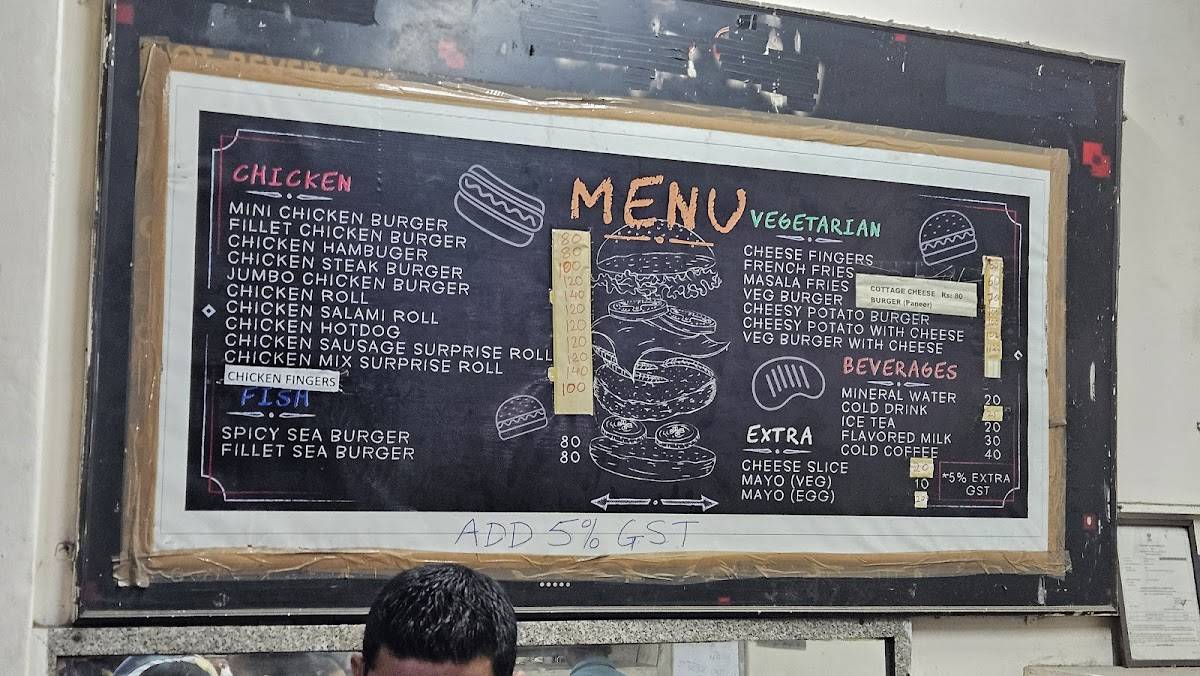 MENU
CHICKEN
MINI CHICKEN BURGER 80
FILLET CHICKEN BURGER 80
CHICKEN HAMBUGER 100
CHICKEN STEAK BURGER 120
JUMBO CHICKEN BURGER 140
CHICKEN ROLL 120
CHICKEN SALAMI ROLL 120
CHICKEN HOTDOG 120
CHICKEN SAUSAGE SURPRISE ROLL
CHICKEN MIX SURPRISE ROLL 140
CHICKEN FINGERS 100
FISH
SPICY SEA BURGER 80
FILLET SEA BURGER 80
VEGETARIAN
CHEESE FINGERS
FRENCH FRIES
MASALA FRIES
VEG BURGER
COTTAGE CHEESE Rs: 80
BURGER (Paneer)
CHEESY POTATO BURGER
CHEESY POTATO WITH CHEESE
VEG BURGER WITH CHEESE
BEVERAGES
MINERAL WATER 20
COLD DRINK
ICE TEA 20
FLAVORED MILK 30
COLD COFFEE 40
EXTRA
CHEESE SLICE 20
MAYO (VEG) 10
MAYO (EGG)
*5% EXTRA
GST
ADD 5% GST